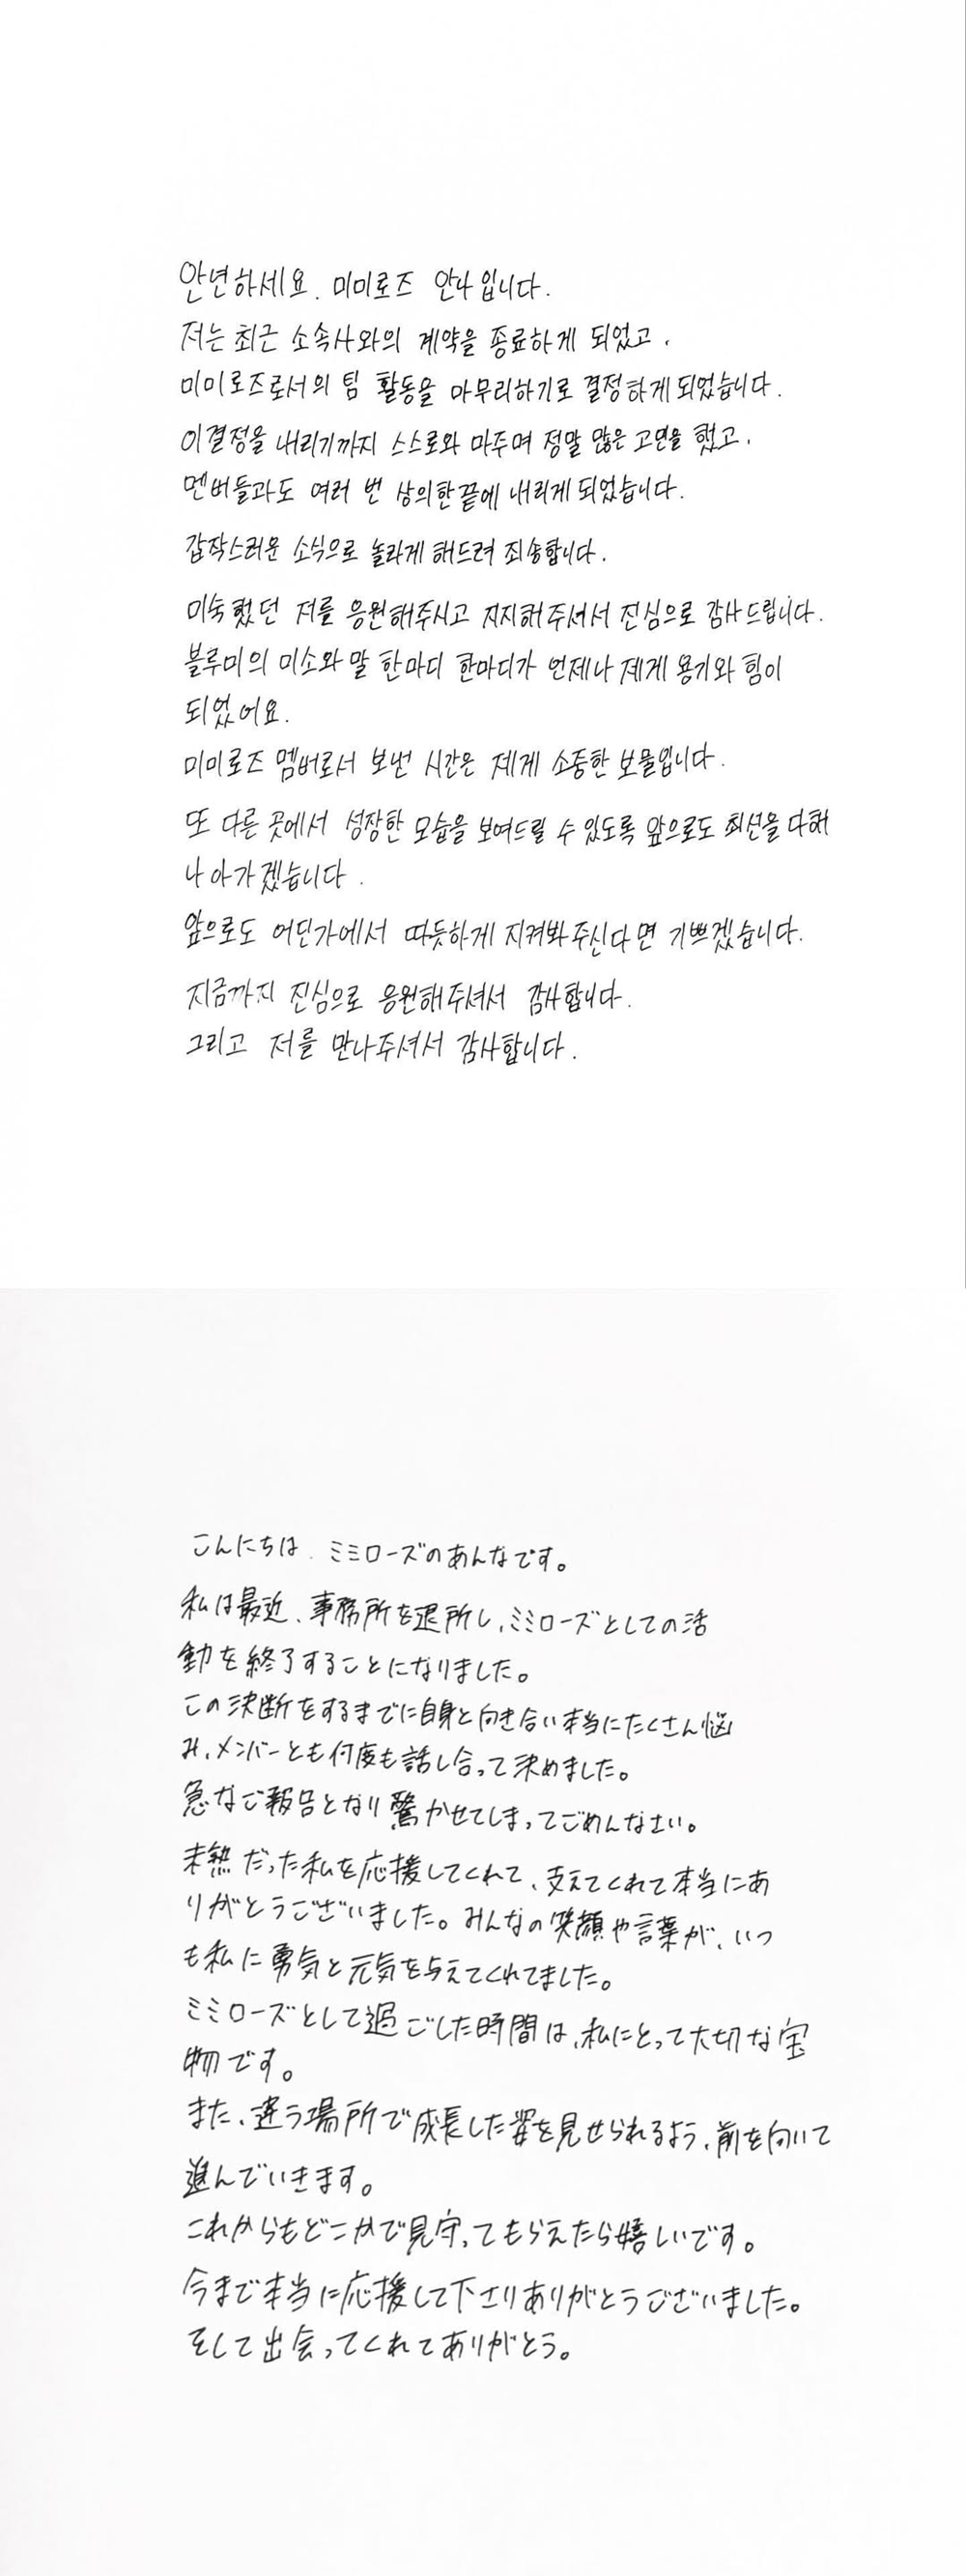 안녕하세요. 미미로즈 안나입니다.
저는 최근 소속사와의 계약을 종료하게 되었고,
미미로즈로서의 팀 활동을 마무리하기로 결정하게 되었습니다.
이 결정을 내리기까지 스스로와 마주며 정말 많은 고민을 했고,
멘버들과도 여러 번 상의한 끝에 내리게 되었습니다.
갑작스러운 소식으로 놀라게 해드려 죄송합니다.
미숙했던 저를 응원해주시고 지지해주셔서 진심으로 감사드립니다.
블루미의 미소와 말 한마디 한마디가 언제나 제게 용기와 힘이
되었어요.
미미로즈 멤버로서 보낸 시간은 제게 소중한 보물입니다.
또 다른 곳에서 성장한 모습을 보여드릴 수 있도록 앞으로도 최선을 다해
나아가겠습니다.
앞으로도 어딘가에서 따듯하게 지켜봐주신다면 기쁘겠습니다.
지금까지 진심으로 응원해주셔서 감사합니다.
그리고 저를 만나주셔서 감사합니다.
こんにちは、ミミローズのあんなです。
私は最近、事務所を退所し、ミミローズとしての活
動を終了することになりました。
この決断をするまでに自身と向き合い本当にたくさん悩
み、メンバーとも何度も話し合って決めました。
急なご報告となり驚かせてしまってごめんなさい。
未熟だった私を応援してくれて、支えてくれて本当にあ
りがとうございました。みんなの笑顔や言葉が、いつ
も私に勇気と元気を与えてくれてました。
ミミローズとして過ごした時間は、私にとって大切な宝
物です。
また、違う場所で成長した姿を見せられるよう、前を向いて
進んでいきます。
これからもどこかで見守ってもらえたら嬉しいです。
今まで本当に応援して下さりありがとうございました。
そして出会ってくれてありがとう。